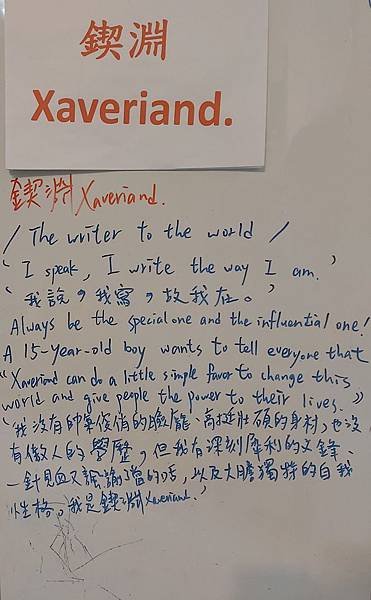 鍥淵
Xaveriand.
鍥淵 Xaveriand.
/ The writer to the world /
‘ I speak, I write the way I am.’
‘ 我說，我寫，故我在。’
Always be the special one and the influential one!
A 15-year-old boy wants to tell everyone that
“Xaveriand can do a little simple favor to change this
world and give people the power to their lives.”
‘我沒有帥美俊俏的臉龐、高挺壯碩的身材，也沒
有傲人的學歷，但我有深刻犀利的文鋒、
一針見血又諷諭了當的話，以及大膽獨特的自我
性格。我是鍥淵Xaveriand.’